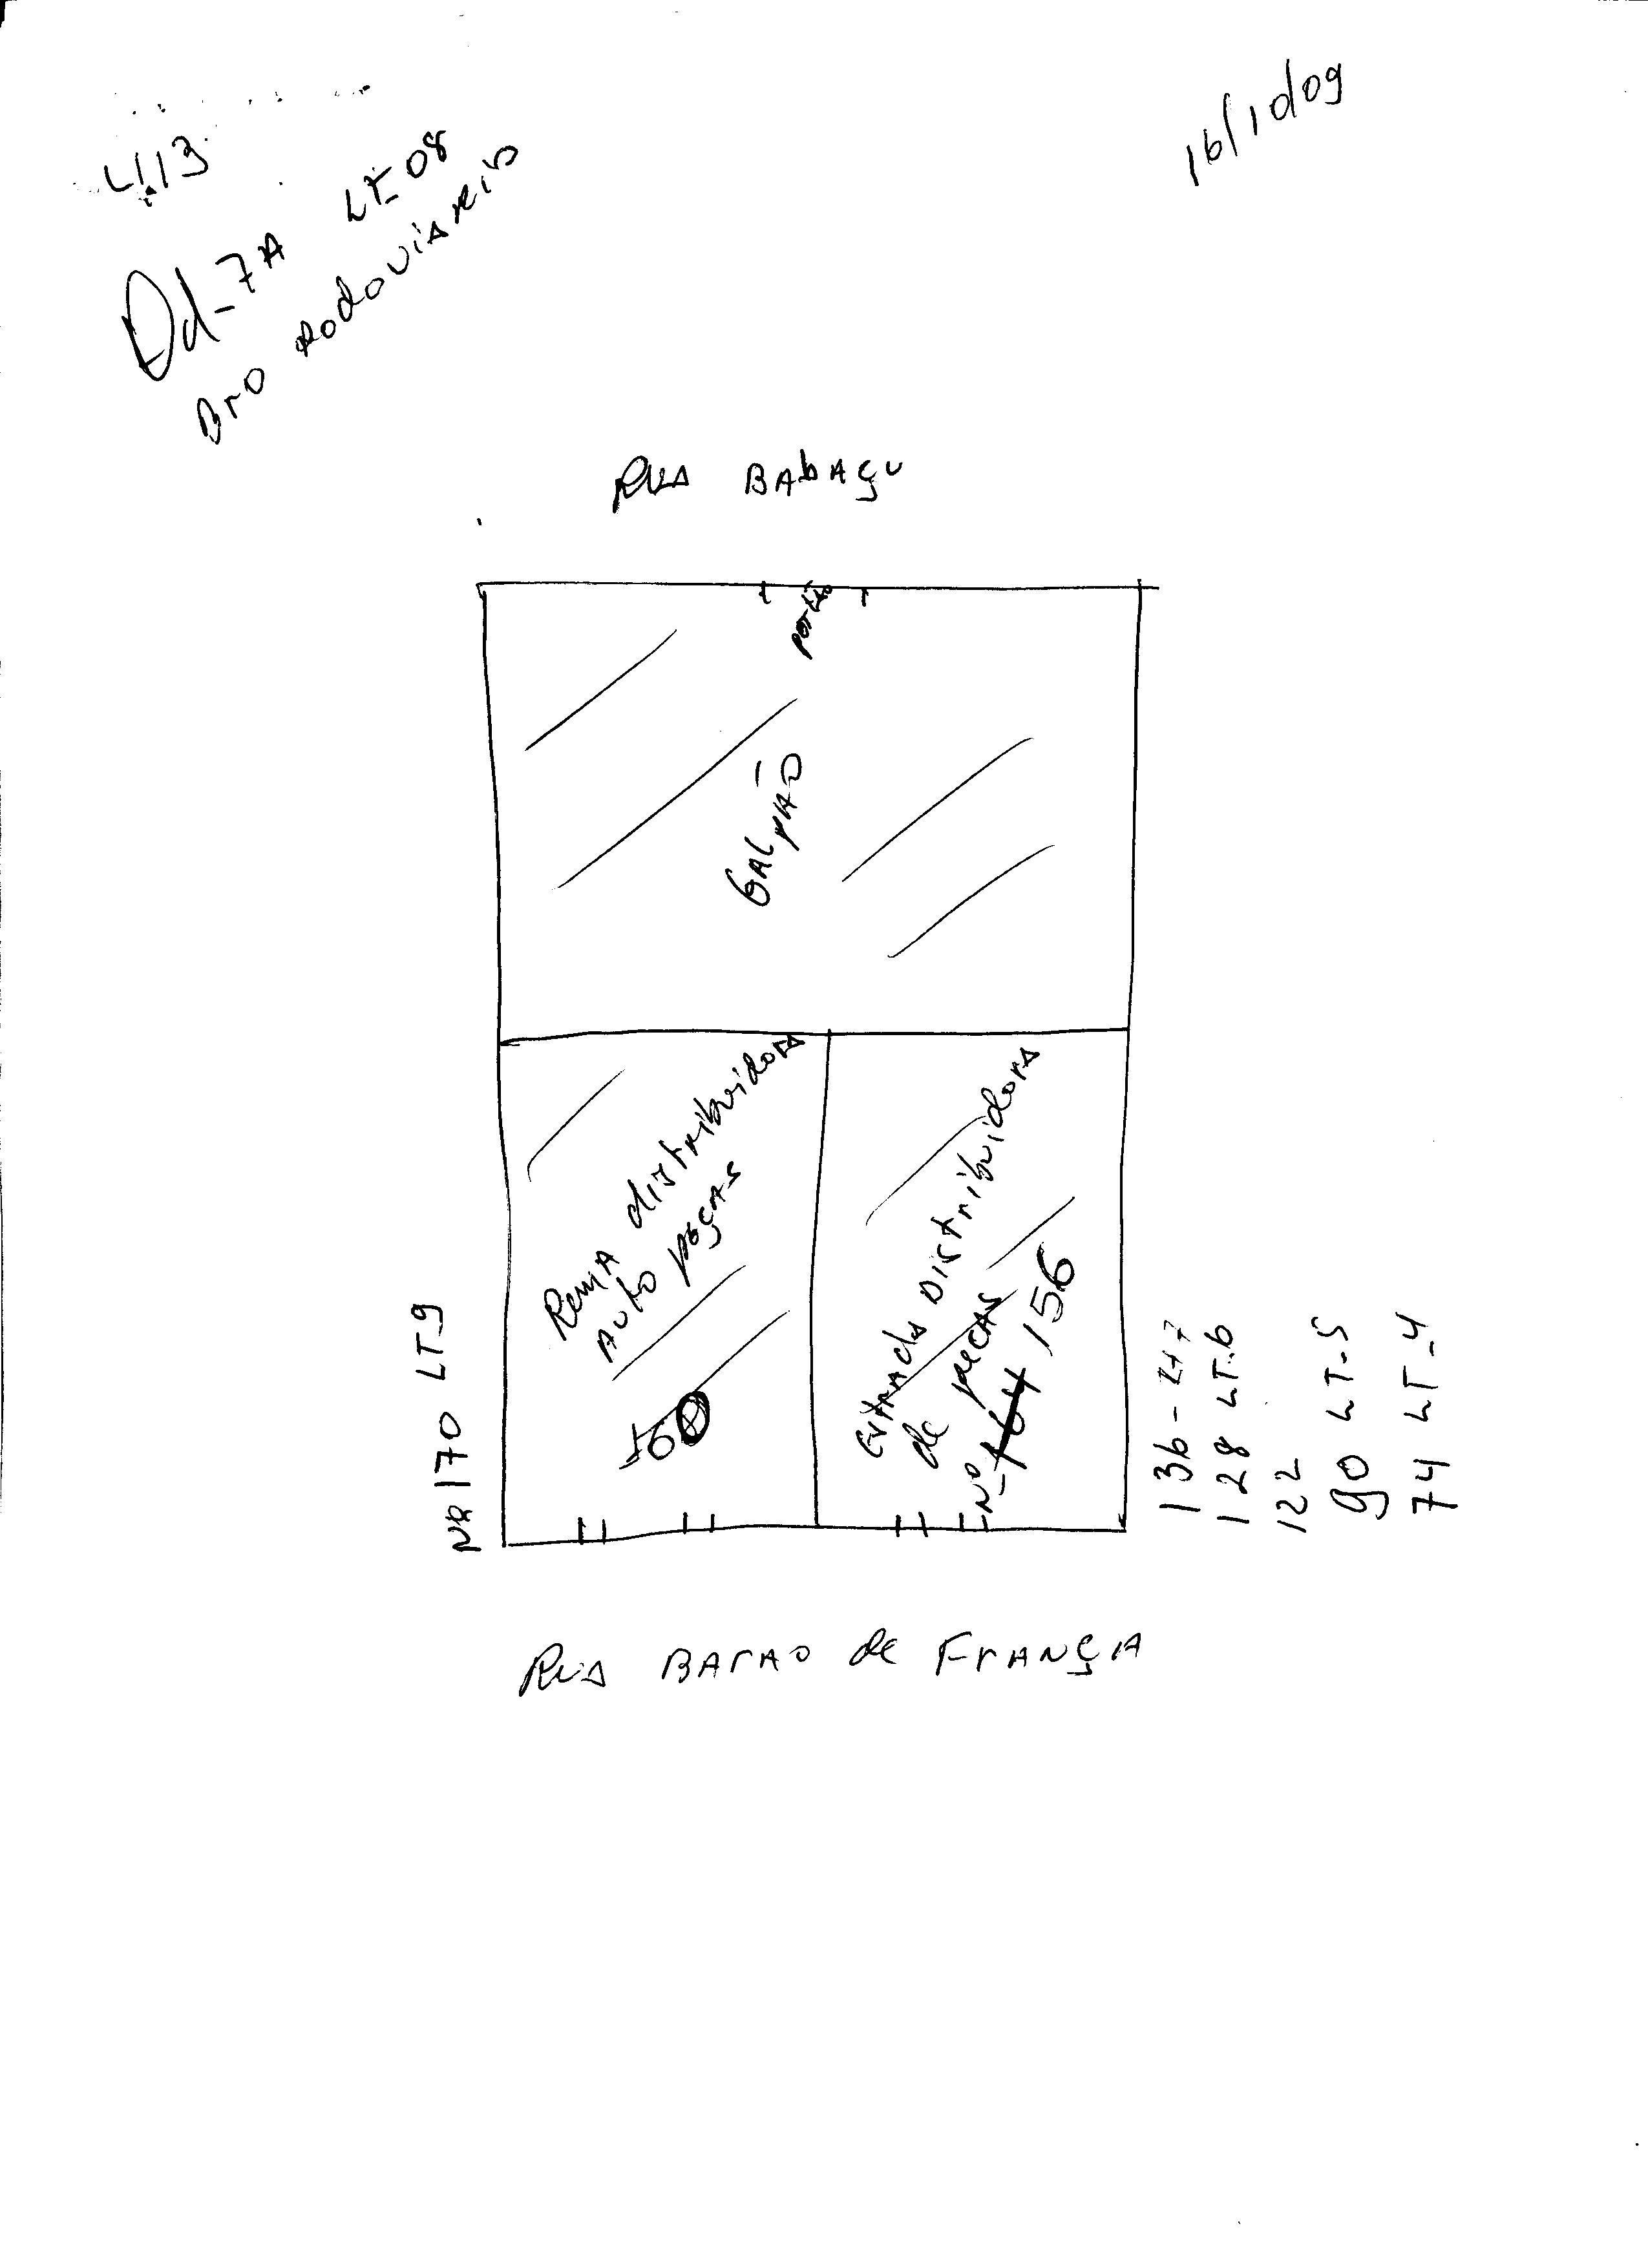 4113
16/10/09
Qd-7A LT 08
Bro Rodoviario
Rua Babaçu
portão
Galpão
Rema distribuidora
Auto peças
160
Estrada Distribuidora
de peças
Nº 164 156
NR 170 LT 9
136 - LT 7
128 LT-6
122
90 LT-5
74 LT-4
Rua Barao de França